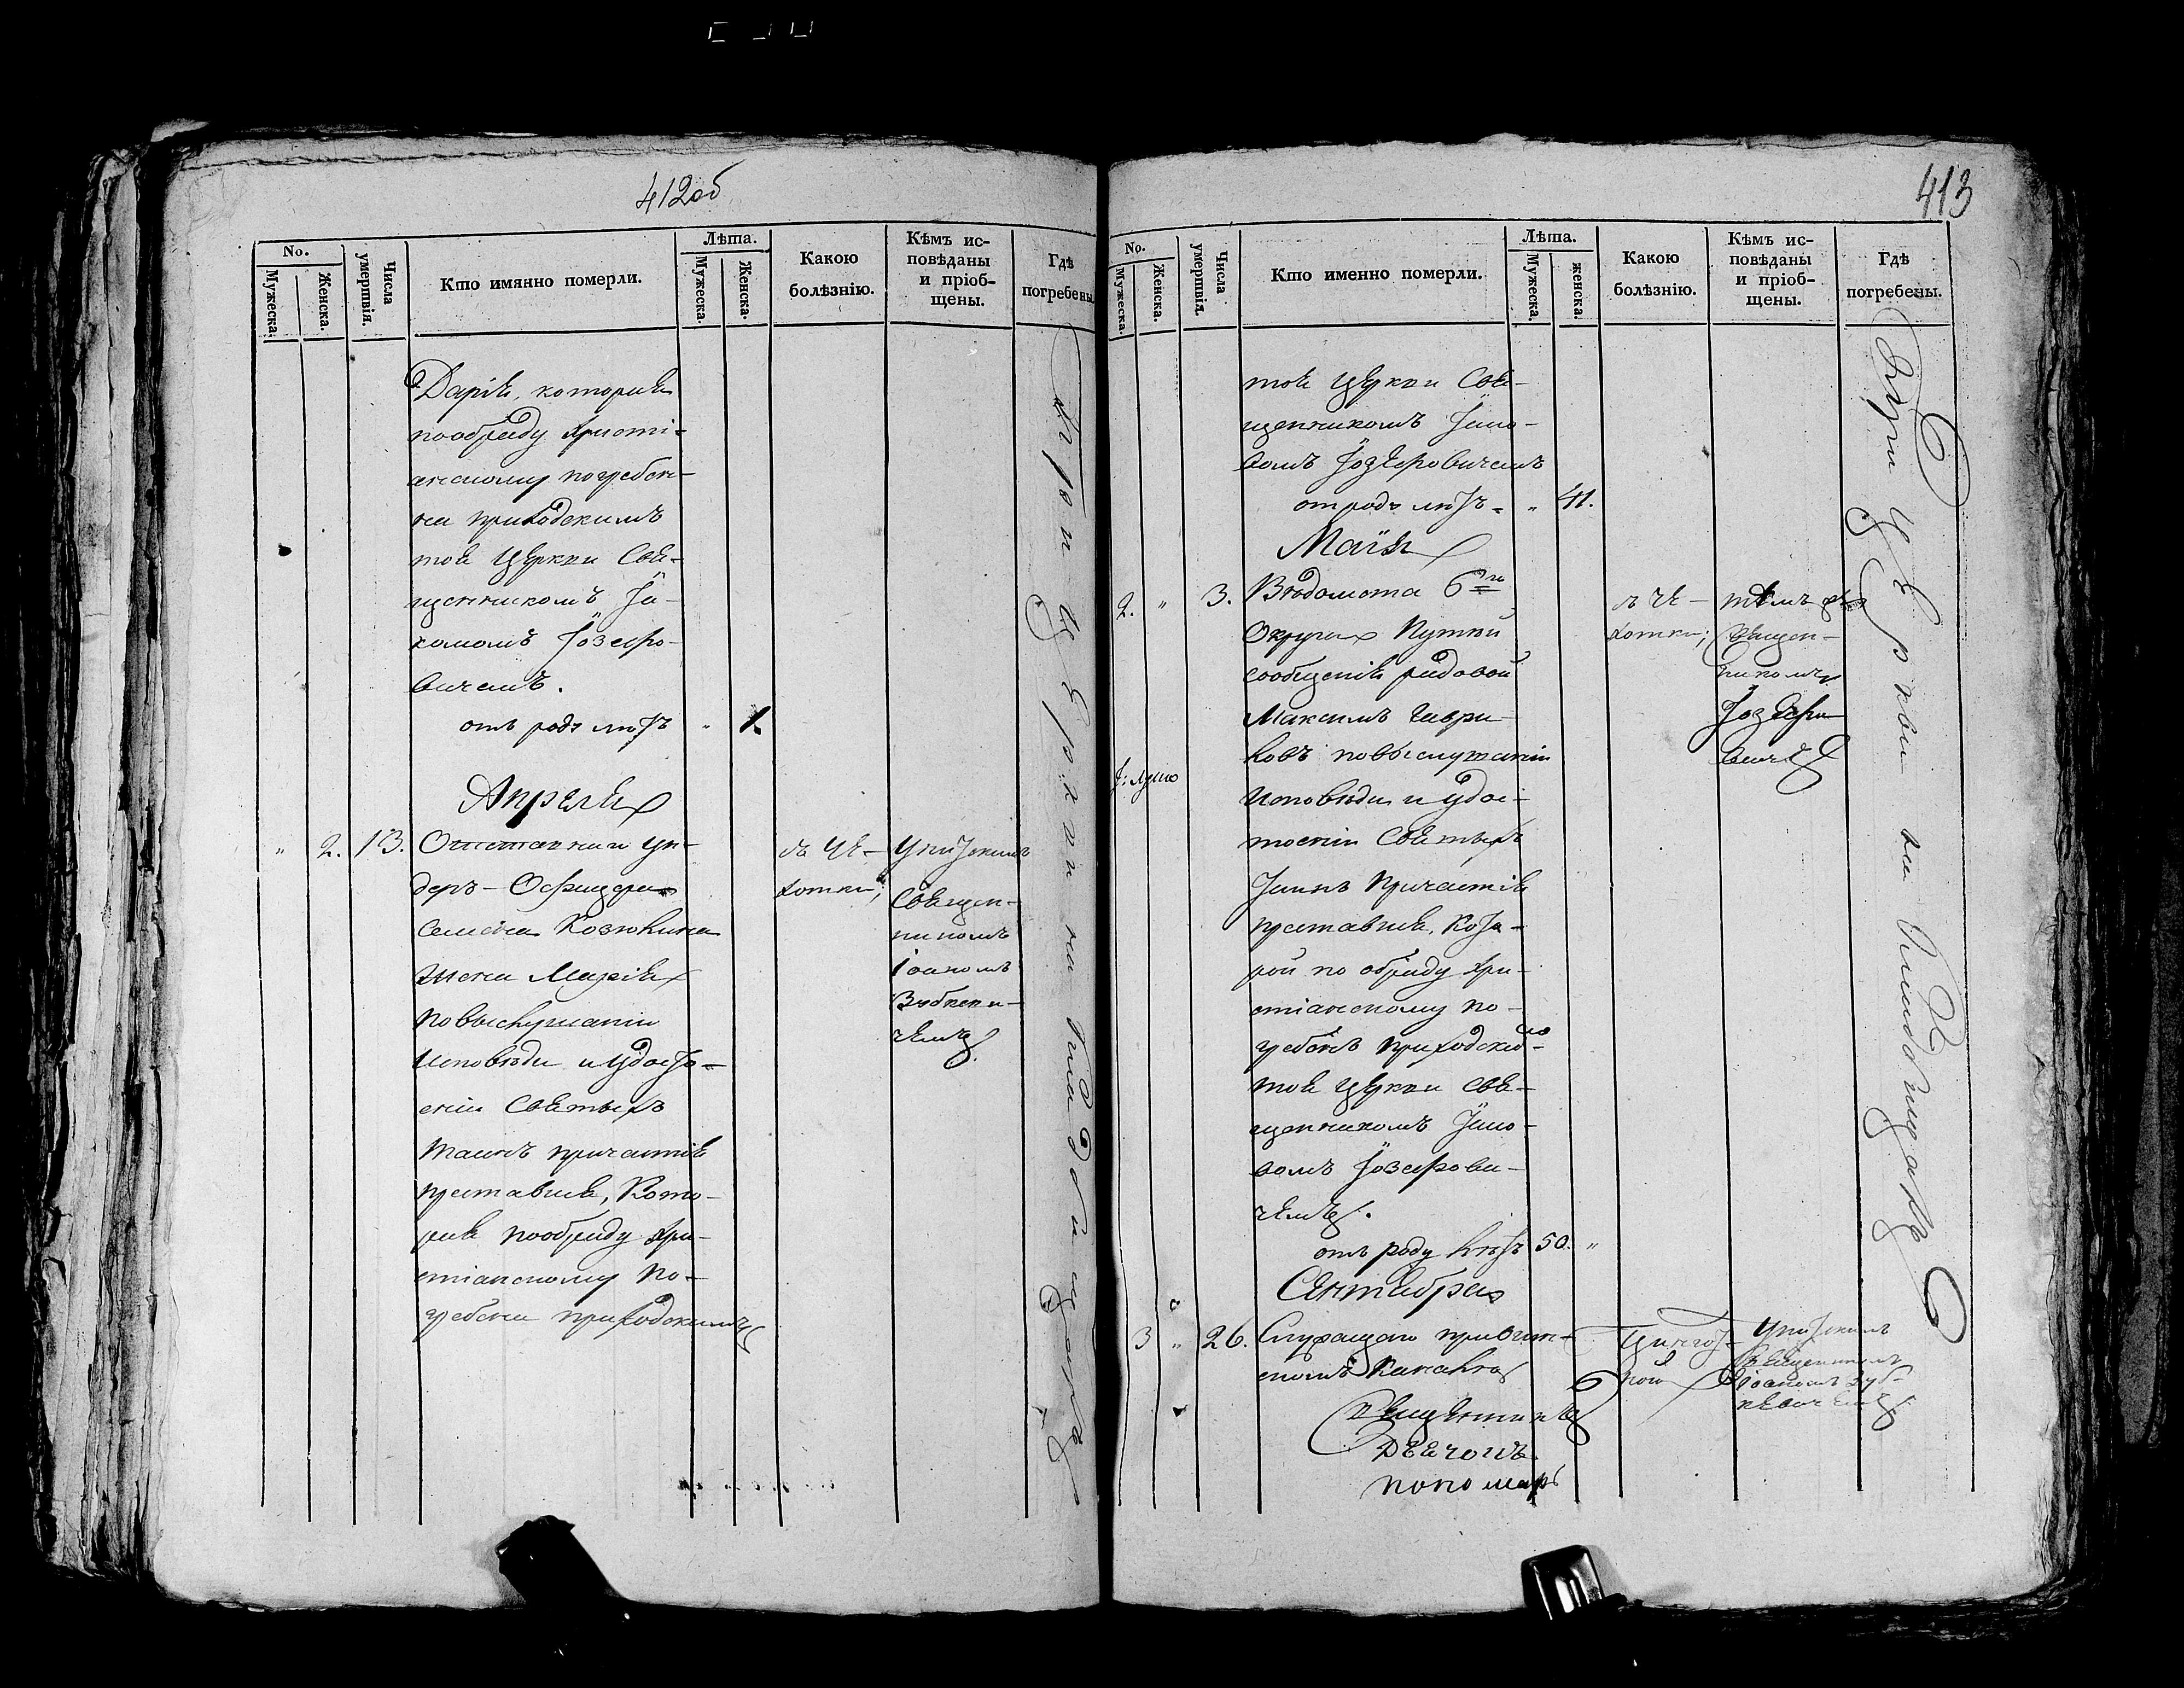 412об
No.
Мужеска.
Женска.
Числа умертвія.
Кто имянно померли.
Лѣта.
Мужеска.
Женска.
Какою болѣзнію.
Кѣмъ ис-
повѣданы
и пріоб-
щены.
Гдѣ
погребены.
Дарія, которая
пообряду Христі-
анскому погребен-
на приходскимъ
тоя Церкви Свя-
щенникомъ
Іозефо-
вичемъ.
отъ роду лѣтъ " 1.
Апреля
" 2. 13. Отставнаго Ун-
деръ-Офицера
Семена Козюкина
жена Марія
по выслушаніи
Исповѣди и удосто-
еніи Святыхъ
Таинъ причастія
преставися, Кото-
рая пообряду Хри-
стіанскому по-
гребена приходскимъ
съ Ча-
хотки;
Уніятскимъ
Священ-
никомъ
Іоаномъ
при Церкви на Кладбищѣ
413
No.
Мужеска.
Женска.
Числа умертвія.
Кто именно померли.
Лѣта.
Мужеска.
женска.
Какою болѣзнію.
Кѣмъ ис-
повѣданы
и пріоб-
щены.
Гдѣ
погребены.
тоя Церкви Свя-
щенникомъ Яко-
вомъ Іозефовичемъ
отроду лѣтъ - " 41.
Маія
2. " 3. Вѣдомства 6го
Округа Путей
сообщенія рядовой
Максимъ Гаври-
ловъ по выслушаніи
Исповѣди и удос-
тоеніи Святыхъ
Таинъ Причастія
преставися, Кото-
рой по обряду Хри-
стіанскому по-
гребенъ приходским
тоя Церкви Свя-
щенникомъ Яко-
вомъ Іозефови-
чемъ.
отъ роду лѣтъ 50. "
съ Ча-
хотки;
тѣмъ же
Священ-
никомъ
Іозефо-
вичемъ
Сентября
3 " 26. Служащаго при
Каналѣ
Уніятскимъ
Священникомъ
Іоаномъ Зуб-
кевичемъ
при Церкви на Кладбищѣ
Священникъ
Дьячокъ
пономарь